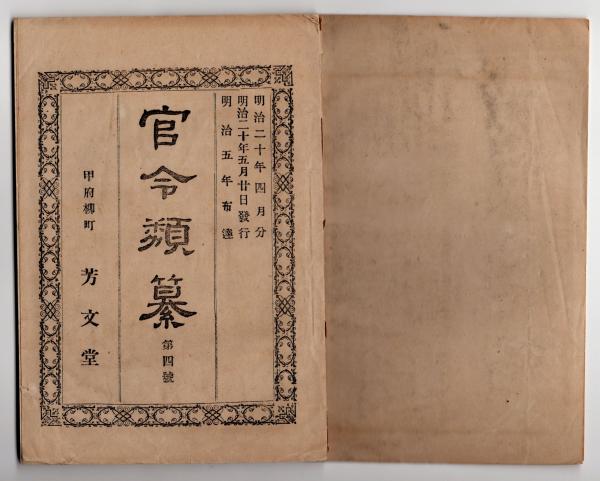 明治二十年四月分
明治二十年五月廿日發行
明治五年布達
官令類纂
第四號
甲府柳町
芳文堂